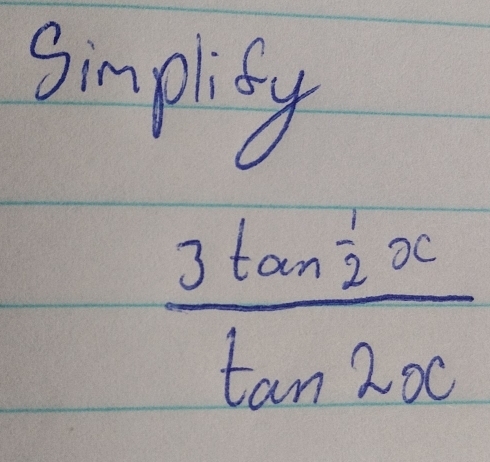 Simplify
3 tan ½ x
tan 2x